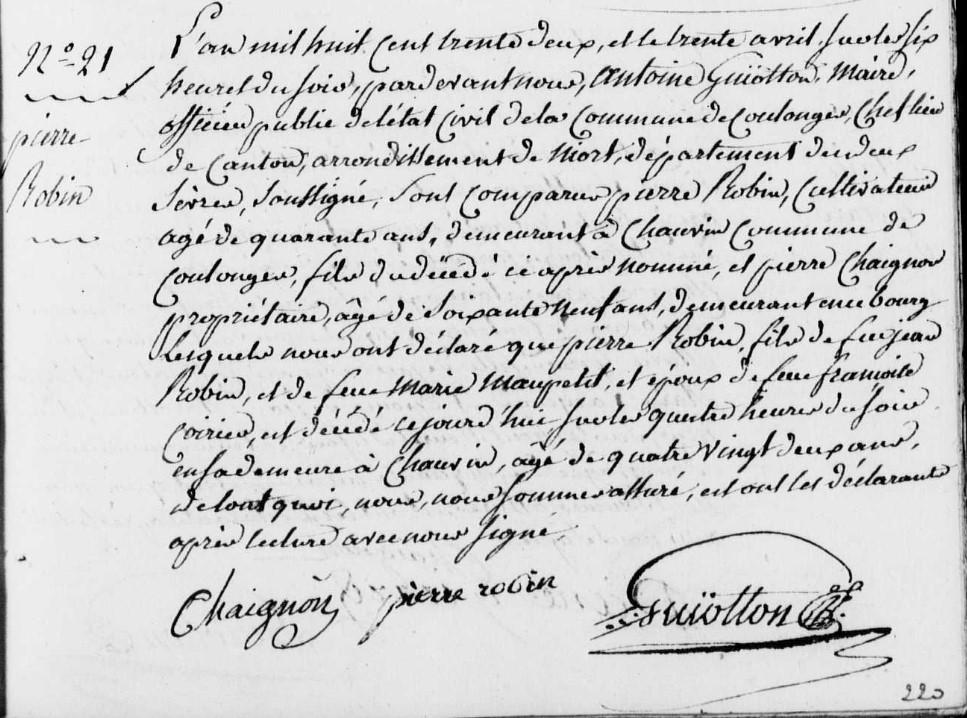 N.o 21
pierre
Robin
L'an mil huit cent trente deux, et le trente avril, sur les six
heures du soir, pardevant nous, Antoine Guïotton, Maire,
officier public de létat civil de la Commune de Coulonges, Chef lieu
de Canton, arrondissement de Niort, département des deux
Sèvres, Soussigné, Sont comparus pierre Robin, Cultivateur
agé de quarante ans, demeurant à Chauvin Commune de
Coulonges, fils du décédé ci après nommé, et pierre Chaignon
propriétaire, âgé de soixante neuf ans, demeurant en ce bourg
lesquels nous ont déclaré que pierre Robin, fils de feu jean
Robin, et de feue Marie Maupetit, et époux de feue françoise
est décédé cejourd'hui sur les quatre heures du soir
en sa demeure à Chauvin, agé de quatre vingt deux ans,
de tout quoi, nous, nous sommes assuré, et ont les déclarants
après lecture avec nous signé.
Chaignon pierre robin Guïotton
220